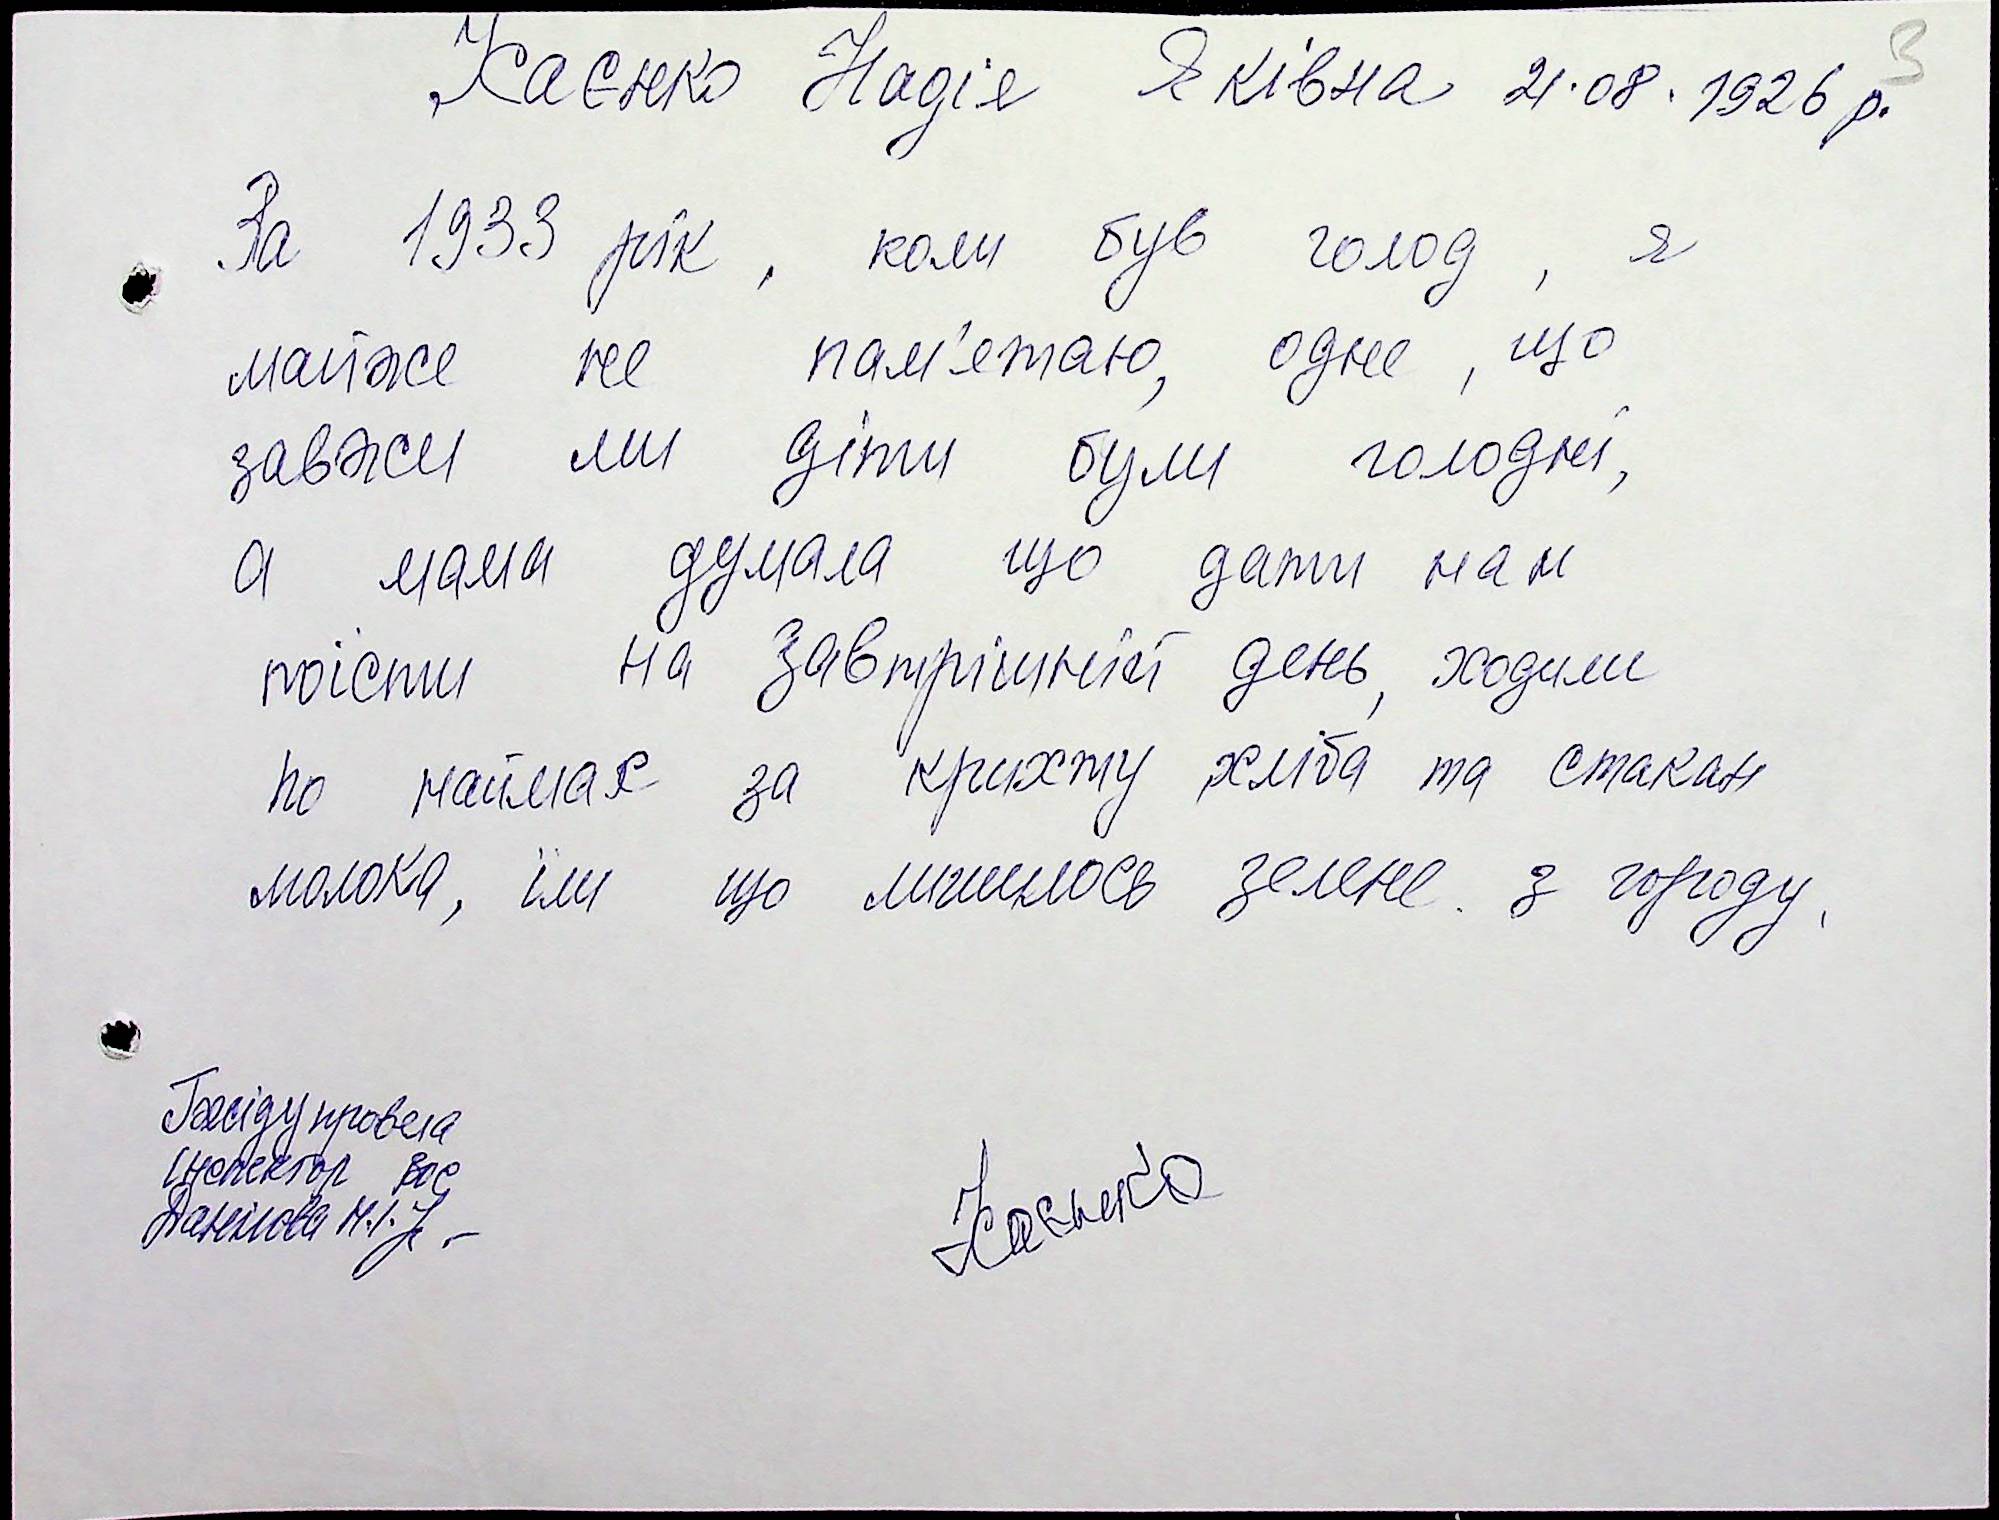 Касенко Надія Яківна 21.08.1926 р.
3
За 1933 рік, коли був голод, я
майже не пам'ятаю, одне, що
завжи ми діти були голодні,
а мама думала що дати нам
поїсти на завтрішній день, ходили
по наймах за крихту хліба та стакан
молока, їли що лишилось зелене з городу.
Бесіду провела
інспектор ВОС
Данілова Н.І.
Касенко